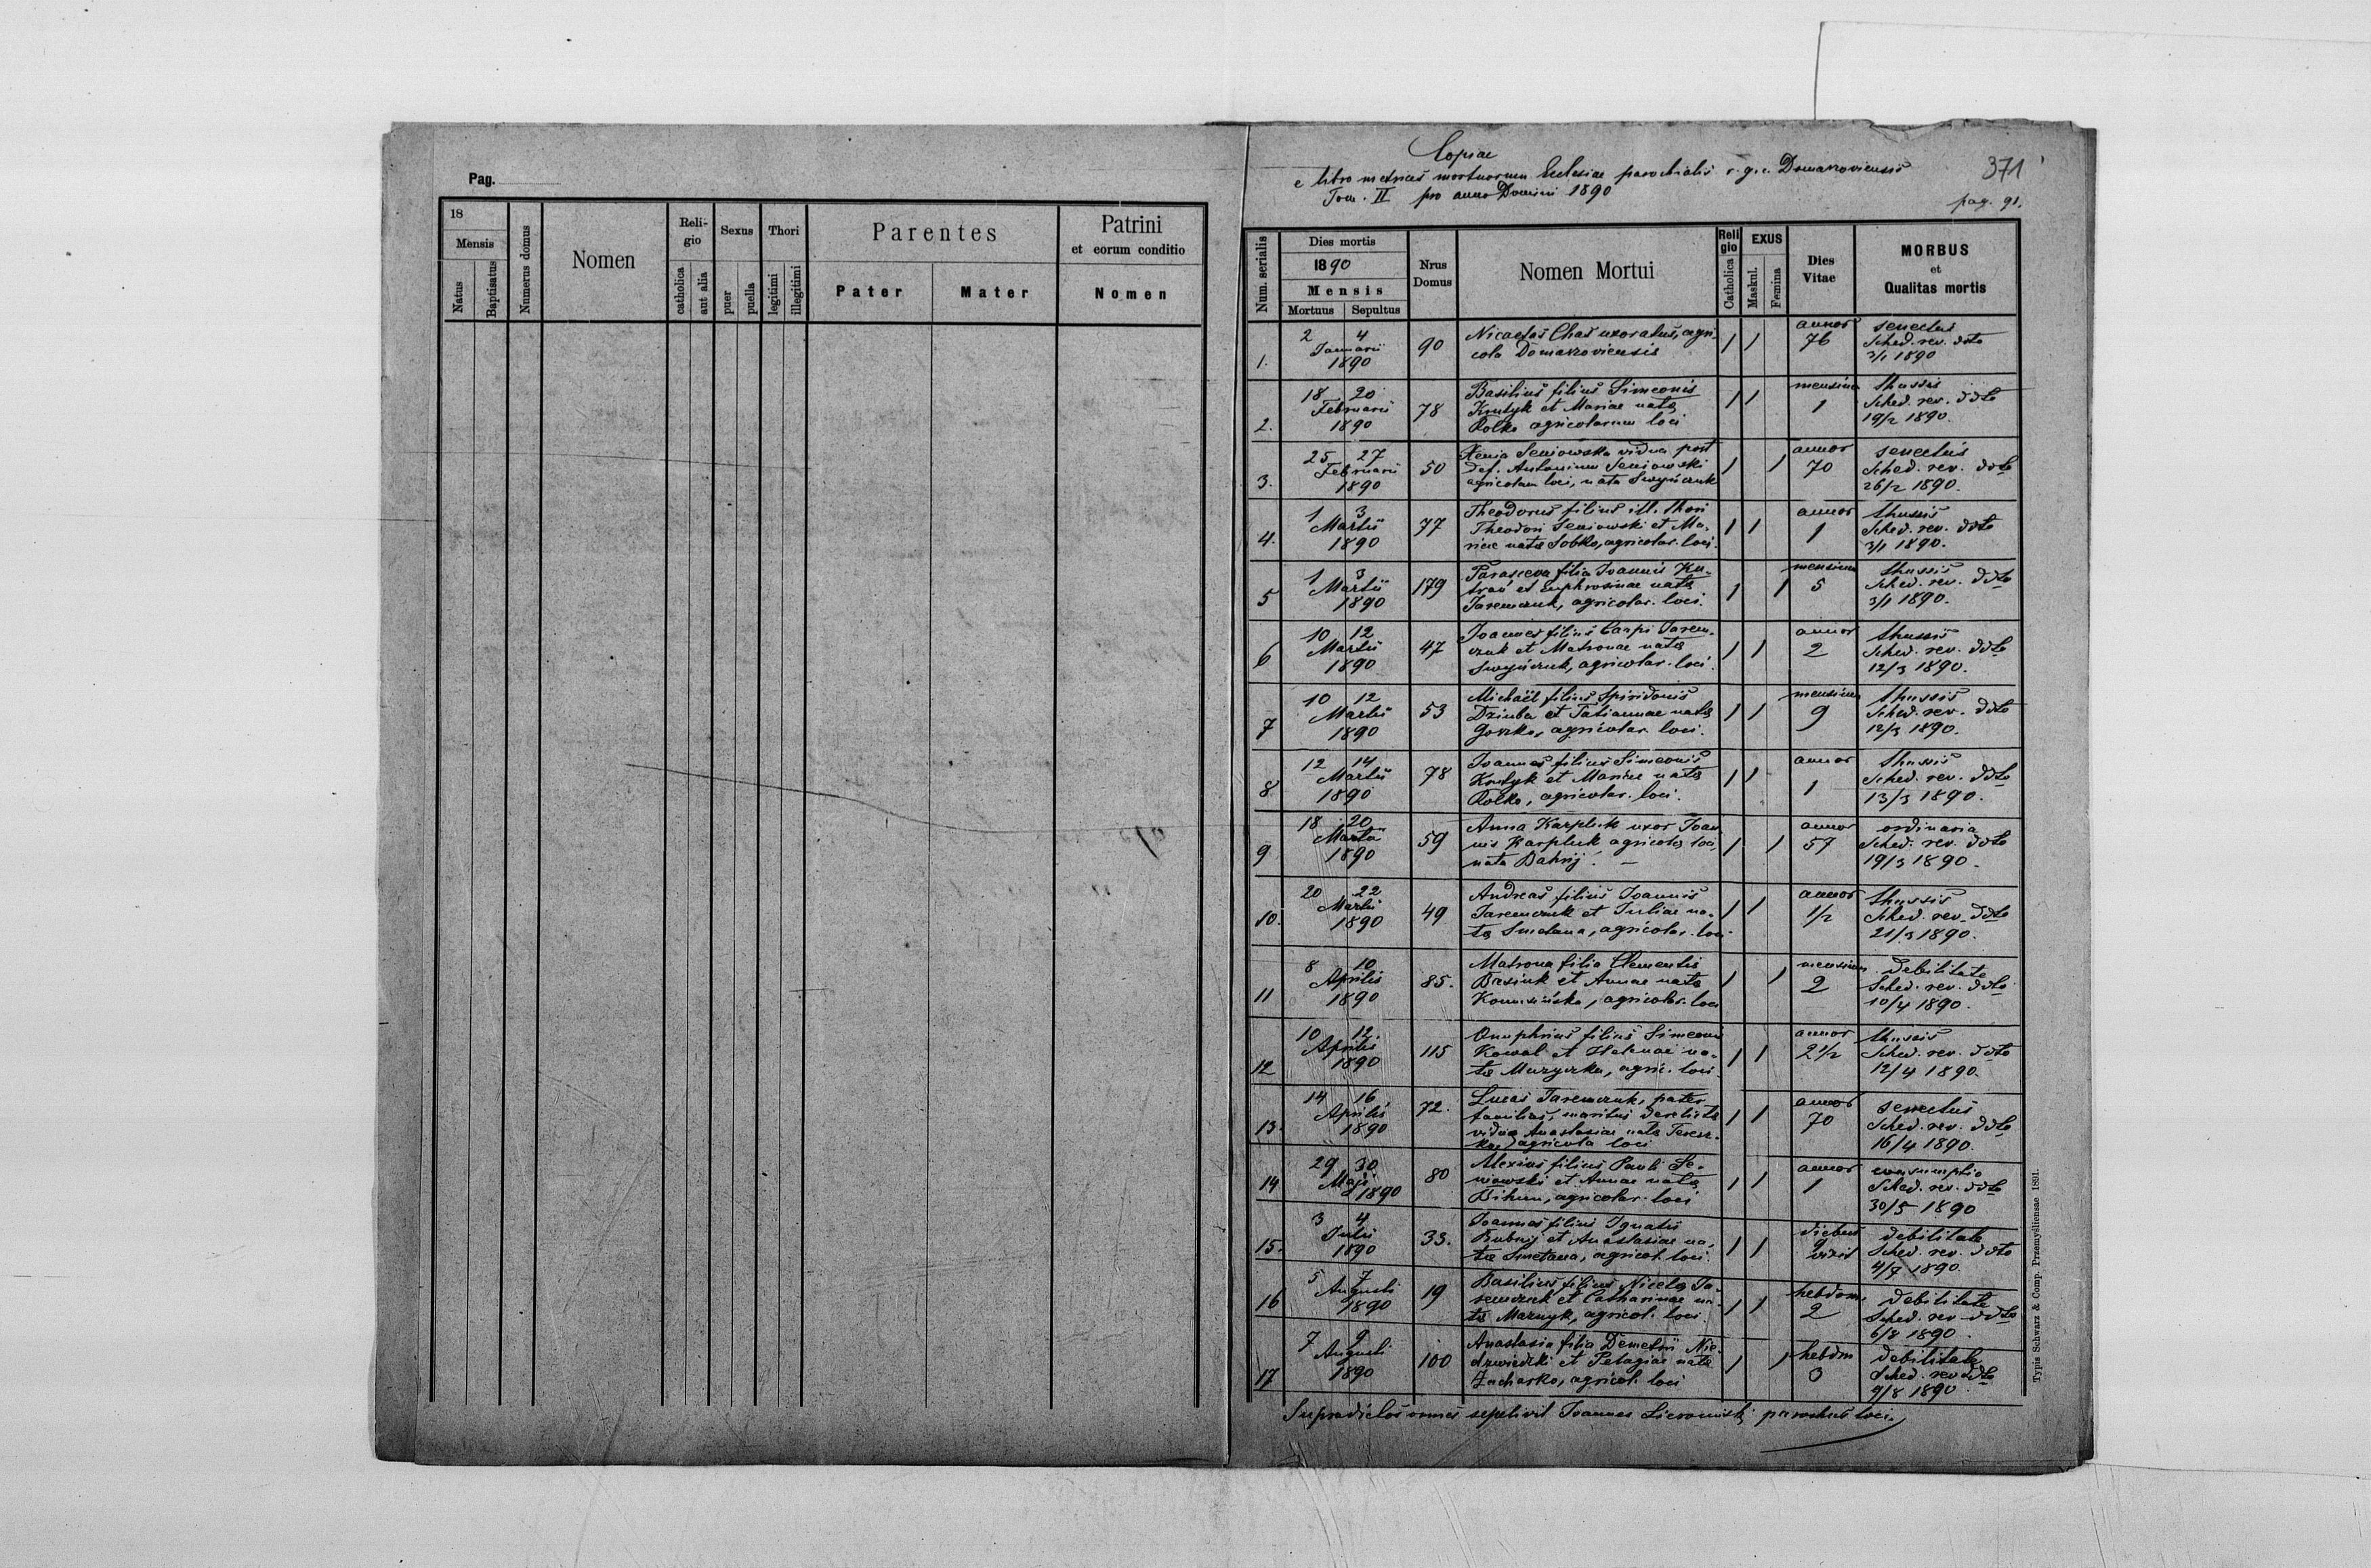 Pag.
18
Mensis
Natus
Baptisatus
Numerus domus
Nomen
Reli-
gio
catholica
aut alia
Sexus
puer
puella
Thori
legitimi
illegitimi
Parentes
Pater
Mater
Patrini
et eorum conditio
Nomen
Copiae
e libro metrices mortuorum Ecclesiae parochialis r. g. c. Domazoviensis
Tom. II pro anno Domini 1890
371
pag. 91.
Num. serialis
Dies mortis
1890
Mensis
Mortuus
Sepultus
Nrus
Domus
Nomen Mortui
Reli
gio
Catholica
EXUS
Maskul.
Femina
Dies
Vitae
MORBUS
et
Qualitas mortis
1. 2 4 Januarii 1890 90
Nicaetas uxoratus, agri-
cola Domazoviensis
1 1 annor 76
senectus
Sched. rev. ddto
3/1 1890
2. 18 20 Februarii 1890 78
Basilius filius Simeonis
Krutyk et Mariae natae
Rolko agricolarum loci
1 1 mensium 1
thussis
Sched. rev. ddto
19/2 1890.
3. 25 27 Februarii 1890 50
Xenia Seniowska vidua post
def. Antonium Seniowski
agricolam loci, nata
1 1 annor 70
senectus
Sched. rev. ddto
26/2 1890.
4. 1 3 Martii 1890 77
Theodorus filius ill. thori
Theodori Seniowski et Ma-
riae natae Sobko, agricolar. loci.
1 1 annor 1
thussis
Sched. rev. ddto
3/1 1890.
5 1 3 Martii 1890 179
Parasceva filia Joannis
et Euphrosinae natae
Jaremczuk, agricolar. loci.
1 1 mensium 5
thussis
Sched. rev. ddto
3/1 1890.
6 10 12 Martii 1890 47
Joannes filius Carpi Jarem-
czuk et Matronae natae
agricolar. loci.
1 1 annor 2
thussis
Sched. rev. ddto
12/3 1890.
7 10 12 Martii 1890 53
Michaël filius Spiridonis
Dziuba et Tatiannae natae
agricolar. loci.
1 1 mensium 9
thussis
Sched. rev. ddto
12/3 1890.
8 12 14 Martii 1890 78
Joannes filius Simeonis
Krutyk et Mariae natae
Rolko, agricolar. loci.
1 1 annor 1
thussis
Sched. rev. ddto
13/3 1890.
9 18 20 Martii 1890 59
Anna Karpluk uxor Joan-
nis Karpluk agricolae loci,
nata Bahrij. —
1 1 annor 57
ordinaria
Sched. rev. ddto
19/3 1890.
10. 20 22 Martii 1890 49
Andreas filius Joannis
Jaremczuk et Juliae na-
tae Smetana, agricolar. loci
1 1 annor 1/2
thussis
Sched. rev. ddto
21/3 1890.
11 8 10 Aprilis 1890 85.
Matrona filia Clementis
et Annae natae
agricolar. loci
1 1 mensium 2
debilitate
Sched. rev. ddto
10/4 1890.
12 10 12. Aprilis 1890 115
Onuphrius filius Simeonis
Kowal et Helenae na-
tae Muzyczka, agric. loci.
1 1 annor 2 1/2
thussis
Sched. rev. ddto
12/4 1890.
13. 14 16 Aprilis 1890 72.
Lucas Jaremczuk, pater
familias, maritus derelictae
viduae Anastasiae natae
agricola loci
1 1 annor 70
senectus
Sched. rev. ddto
16/4 1890.
14 29 30 Maji 1890 80
Alexius filius Pauli Se-
niowski et Annae natae
Bihun, agricolar. loci
1 1 annor 1
consumptio
Sched. rev. ddto
30/5 1890
15. 3 4 Julii 1890 33.
Joannes filius Ignatii
et Anastasiae na-
tae Smetana, agricol. loci.
1 1 diebus 9 vixit
debilitate
Sched. rev. ddto
4/7 1890
16 5 7 Augusti 1890 19
Basilius filius Nicetae Ja-
remczuk et Catharinae na-
tae Mazuyk, agricol. loci.
1 1 hebdom. 2
debilitate
Sched. rev. ddto
6/8 1890.
17 7 9 Augusti 1890 100
Anastasia filia Demetrii Nie-
dzwiedzki et Pelagiae natae
Zacharko, agricol. loci
1 1 hebdm 3
debilitate
Sched. rev ddto
9/8 1890.
Supradictos omnes sepelivit Joannes parochus loci.
Typis Schwarz & Comp. Przemyśliensae 1891.